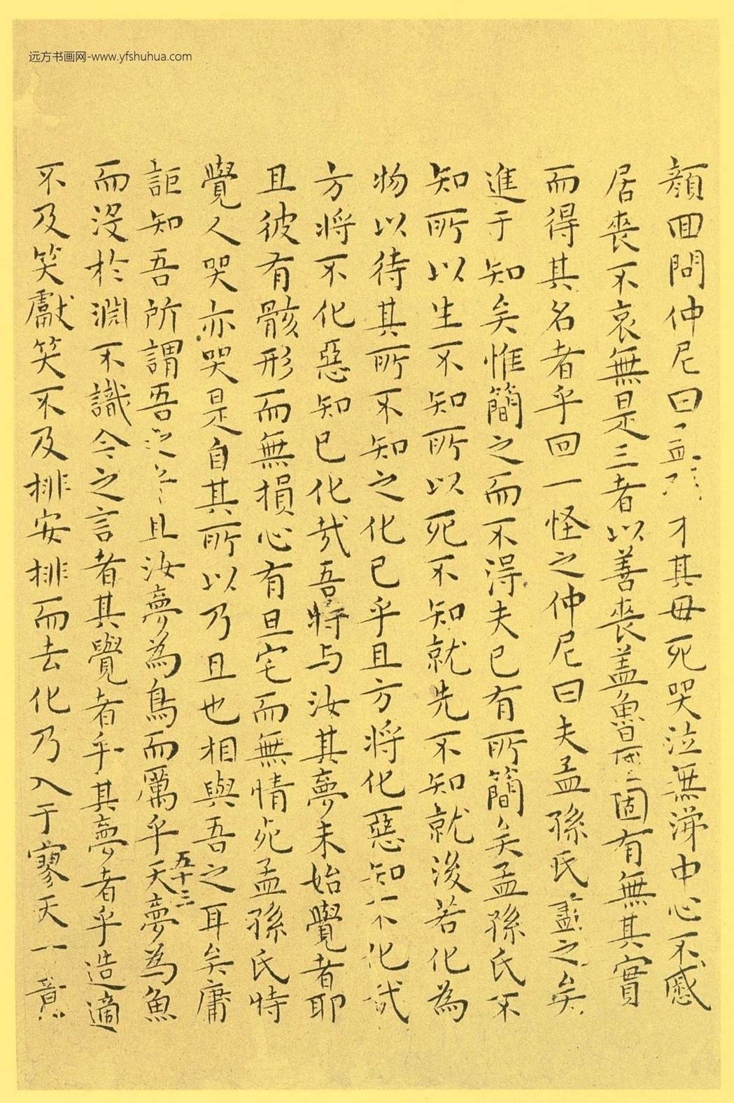 远方书画网-www.yfshuhua.com
顏回問仲尼曰孟孫才其母死哭泣無涕中心不慼
居喪不哀無是三者以善喪蓋魯國固有無其實
而得其名者乎回一怪之仲尼曰夫孟孫氏盡之矣
進于知矣惟簡之而不得夫已有所簡矣孟孫氏不
知所以生不知所以死不知就先不知就後若化為
物以待其所不知之化已乎且方將化惡知不化哉
方將不化惡知已化哉吾特与汝其夢未始覺者耶
且彼有骸形而無損心有旦宅而無情死孟孫氏特
覺人哭亦哭是自其所以乃且也相與吾之耳矣庸
詎知吾所謂吾之 且汝夢為鳥而厲乎天夢為魚
五十三
而沒於淵不識今之言者其覺者乎其夢者乎造適
不及笑獻笑不及排安排而去化乃入于寥天一